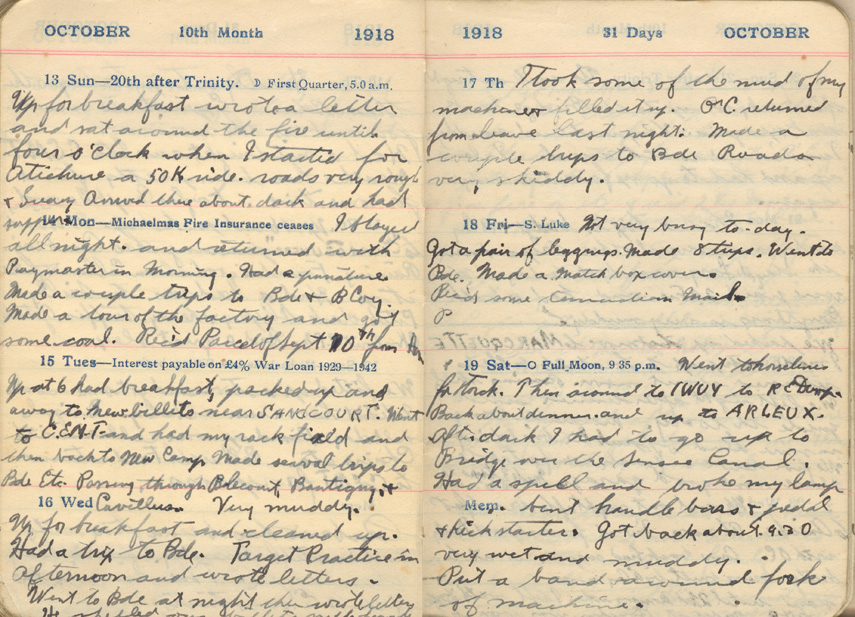 OCTOBER 10th Month 1918
13 Sun—20th after Trinity. ☽ First Quarter, 5.0 a.m.
Up for breakfast wrote a letter
and sat around the fire until
four o'clock when I started for
a 50K ride. roads very rough
& Arrived there about dark and had
supper
14 Mon—Michaelmas Fire Insurance ceases I stayed
all night. and returned with
Paymaster in Morning. Had a puncture
Made a couple trips to Bde & B Coy.
Made a tour of the factory and got
some coal. Rec'd Parcel of Sept 10th from
15 Tues—Interest payable on £4% War Loan 1929—1942
Up at 6 had breakfast, packed up and
away to New billits near SANCOURT. Went
to and had my rack fixed and
then back to New Camp Made several trips to
Bde Etc. Passing through Blecourt, Bantigny &
16 Wed Cuvillers. Very muddy.
Up for breakfast and cleaned up.
Had a trip to Bde. Target Practice in
afternoon and wrote letters.
Went to Bde at night then wrote letter
1918 31 Days OCTOBER
17 Th I took some of the mud of my
machine & filled it up. O.C. returned
from leave last night. Made a
couple trips to Bde Roads
very skiddy.
18 Fri—S. Luke Not very busy to-day.
Got a pair of leggings. Made 8 trips. Went to
Bde. Made a Match box cover.
Rec'd some Canadian Mail.
P
19 Sat—○ Full Moon, 9 35 p.m. Went to horselines
for Then around to IWUY to R E Dump.
Back about dinner. and up to ARLEUX.
After dark I had to go up to
Bridge over the Sensee Canal.
Had a spill and broke my lamp
Mem. bent handle bars & pedal
& kick starter. Got back about 9.30
very wet and muddy.
Put a band around fork
of machine.